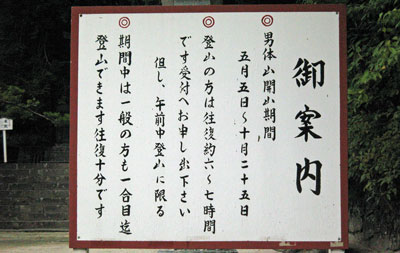 御案内
◎男体山開山期間
五月五日～十月二十五日
◎登山の方は往復約六～七時間
です受付へお申し出下さい
但し、午前中登山に限る
◎期間中は一般の方も一合目迄
登山できます往復十分です